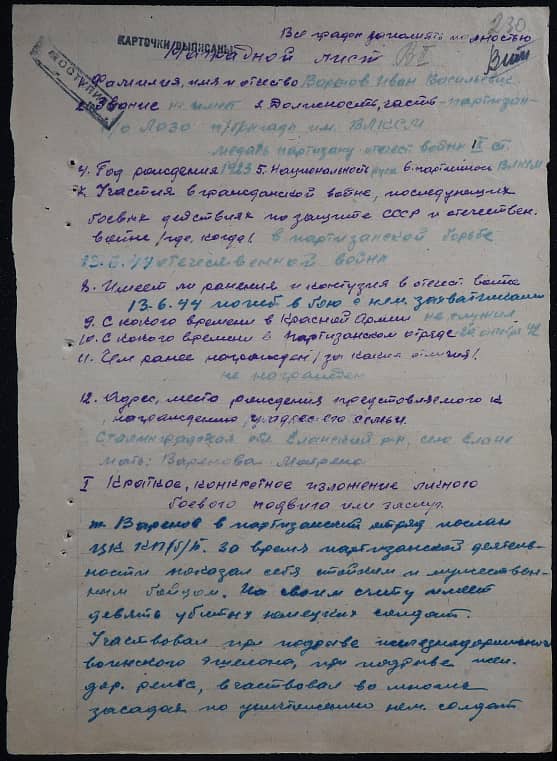 230
Все графы заполнять полностью
КАРТОЧКИ ВЫПИСАНЫ
Наградной лист
Фамилия, имя и отчество Варенов Иван Васильевич
Звание не имеет 3. Должность, часть партизан
о Лазо п/бригады им. ВЛКСМ
медаль партизану отечест войны II ст.
4. Год рождения 1923 5. Национальность русск 6. партийной ВЛКСМ
7. Участия в гражданской войне, последующих
боевых действиях по защите СССР и отечествен.
войне /где, когда/ в партизанской борьбе
13.6.44 отечественной война
8. Имеет ли ранения и контузия в отечест. войне
13.6.44 погиб в бою с нем. захватчиками
9. С какого времени в Красной Армии не служил
10. С какого времени в партизанском отряде октябр 42
11. Чем ранее награжден /за какие отличия/
не награжден
12. Адрес, место рождения представляемого к
награждению, и адрес его семьи
Сталинградская обл. Еланский р-н, село Елань
мать: Варенова Матрена
I Краткое, конкретное изложение личного
боевого подвига или заслуг.
т. Варенов в партизанский отряд послан
ЦК КП/б/Б. За время партизанской деятель-
ности показал себя стойким и мужествен-
ным бойцом. На своем счету имеет
девять убитых немецких солдат.
Участвовал при подрыве железнодорожного
воинского эшелона, при подрыве жел.
дор. рельс, участвовал во многих
засадах по уничтожению нем. солдат